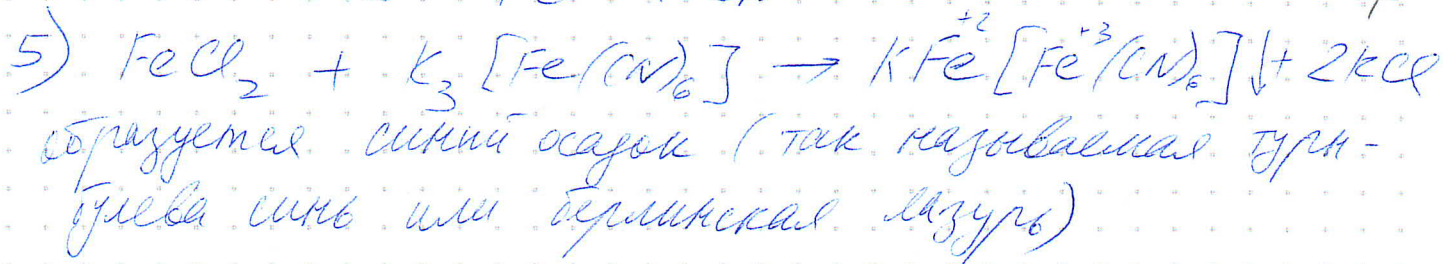 5) FeCl₂ + K₃[Fe(CN)₆] → KFe⁺²[Fe⁺³(CN)₆]↓ + 2KCl
образуется синий осадок (так называемая турн-
булева синь или берлинская лазурь)